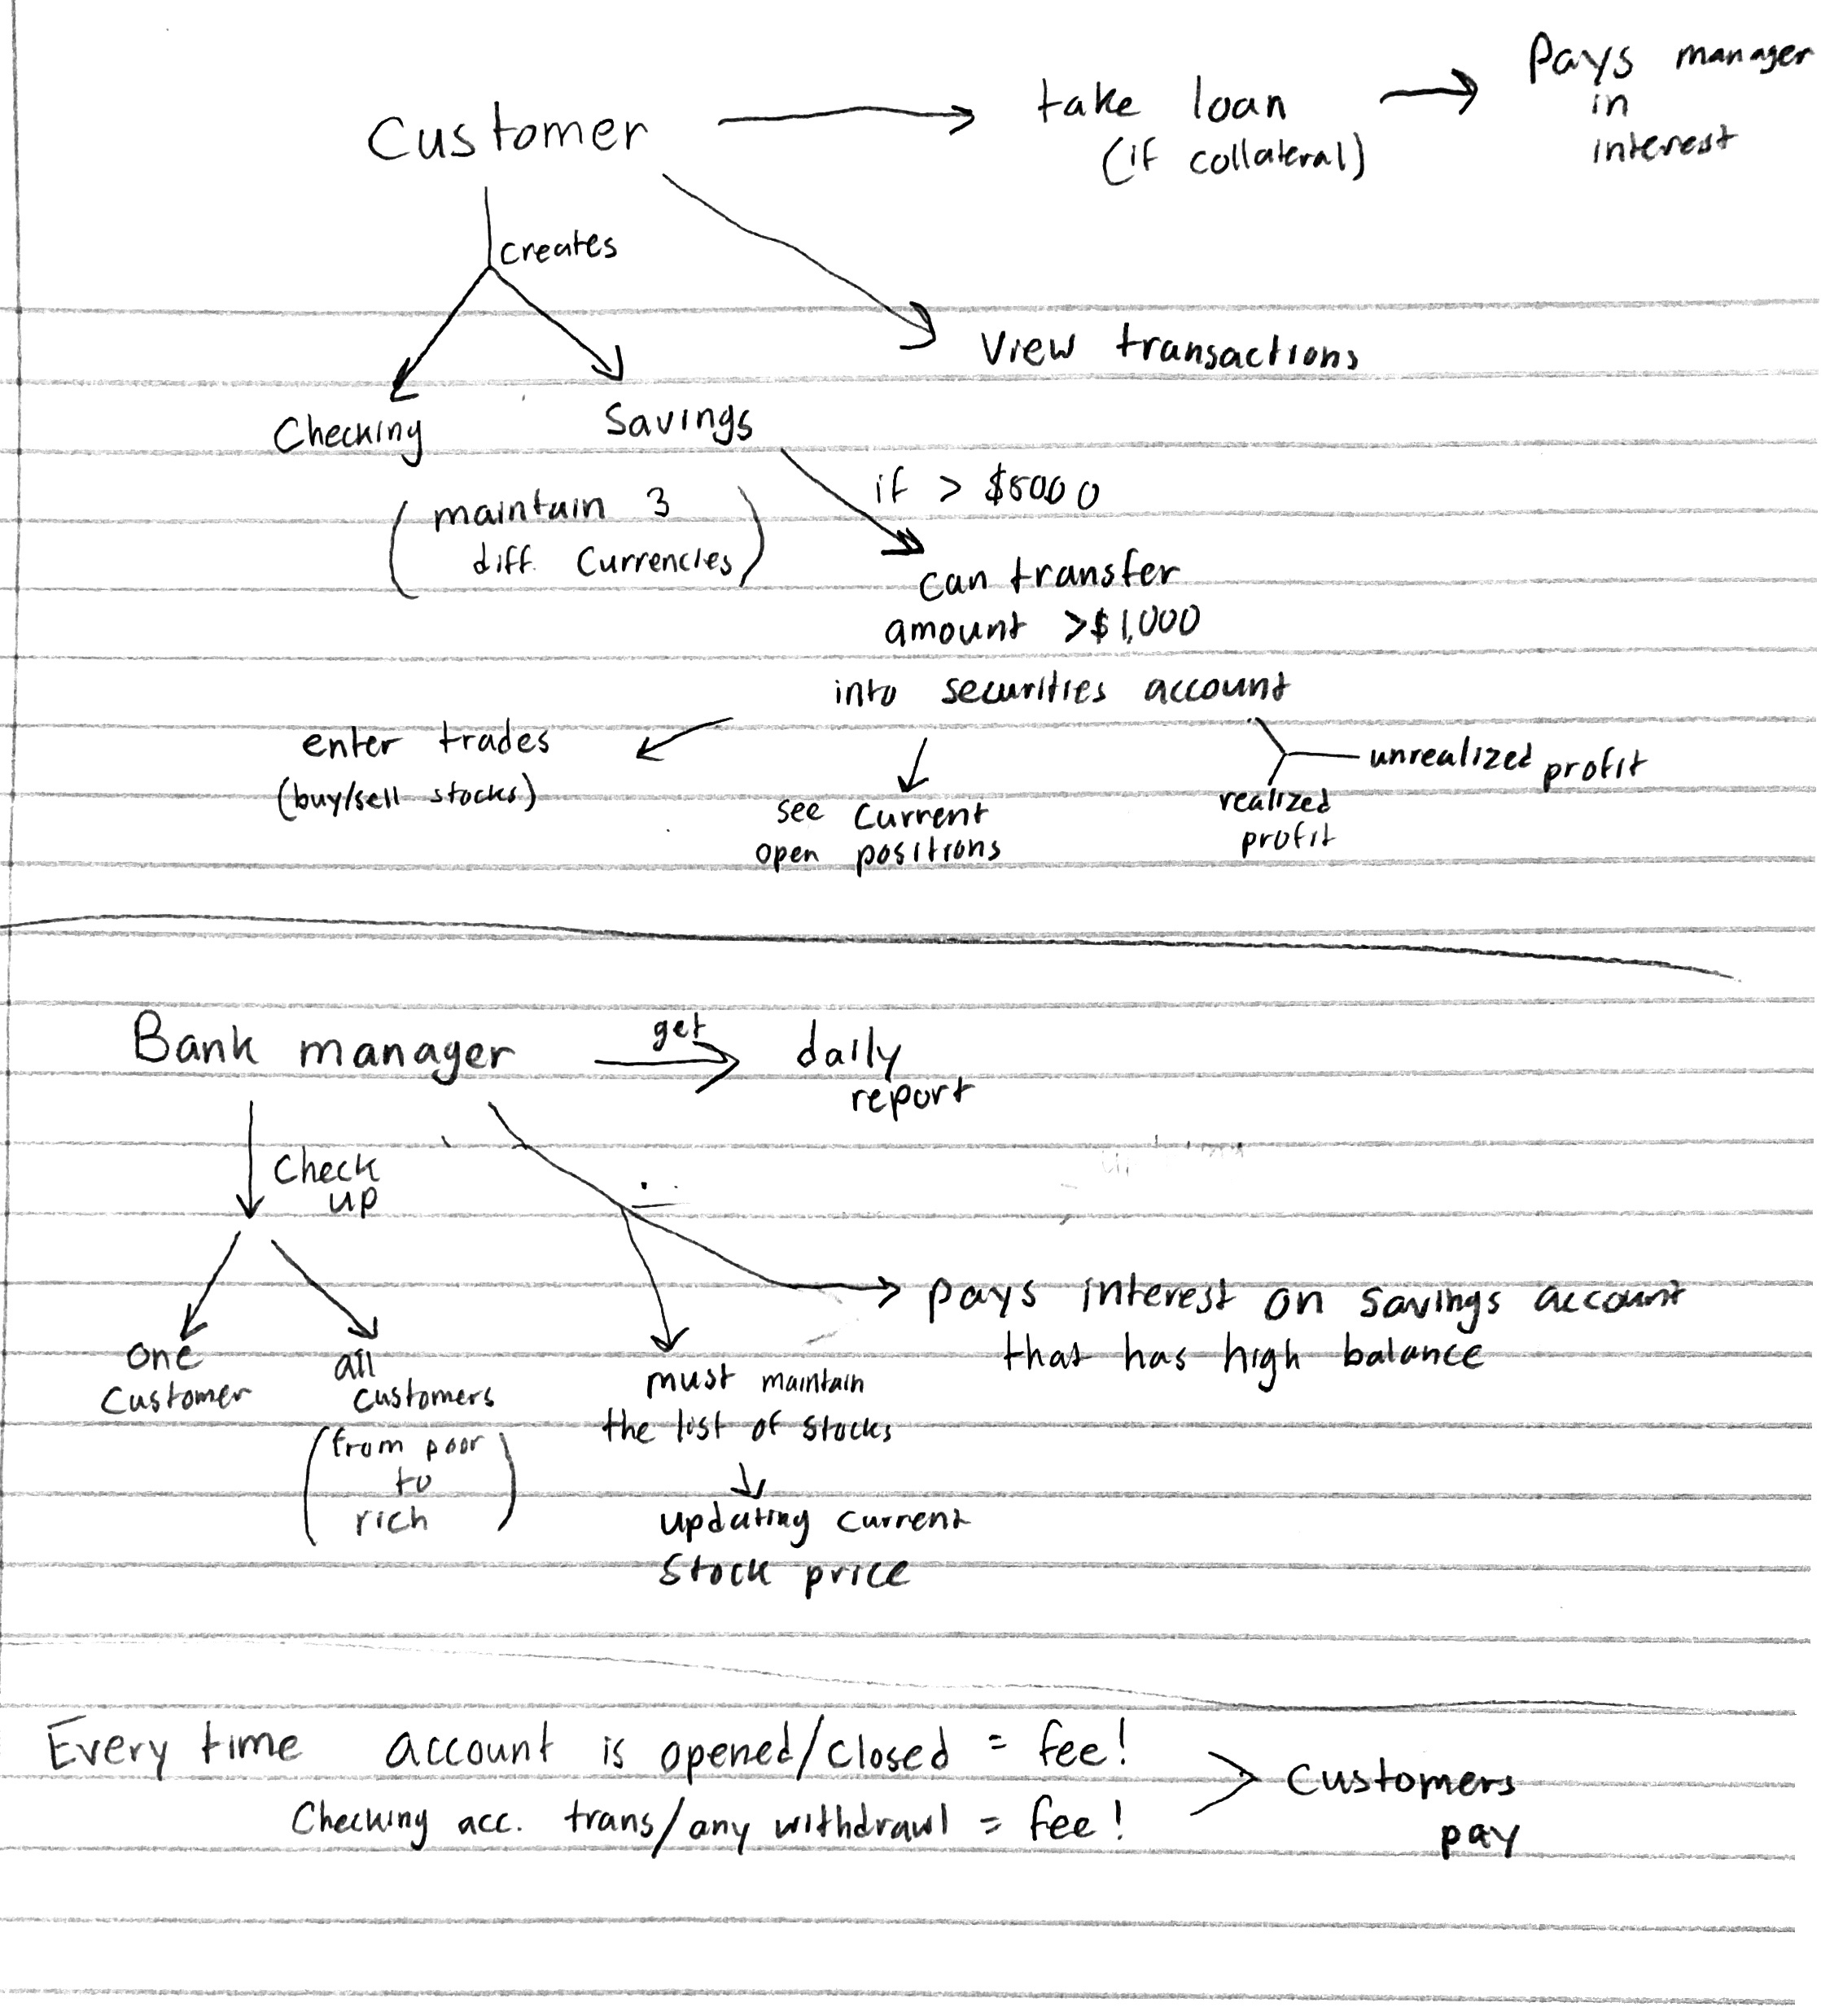 Customer
take loan
(if collateral)
Pays manager
in
interest
creates
View transactions
Checking
Savings
(maintain 3
diff. Currencies)
if > $5000
can transfer
amount >$1,000
into securities account
enter trades
(buy/sell stocks)
see Current
open positions
unrealized profit
realized
profit
Bank manager
get
daily
report
Check
up
one
Customer
all
customers
(from poor
to
rich)
must maintain
the list of stocks
updating current
Stock price
pays interest on savings account
that has high balance
Every time account is opened/closed = fee!
Checking acc. trans/any withdrawl = fee!
> Customers
pay